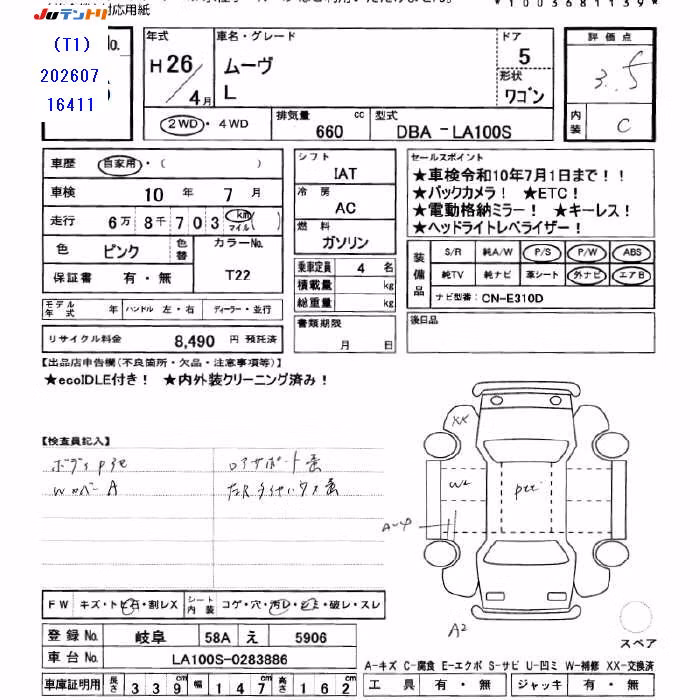 対応用紙
*1003681139*
JUテントリ
(T1)
202607
16411
No.
年式
H26
4月
車名・グレード
ムーヴ
L
ドア
5
形状
ワゴン
評価点
3.5
内装
C
2WD・4WD
排気量
660 cc
型式
DBA-LA100S
車歴 自家用・( )
車検 10年 7月
走行 6万8千703 km マイル ( )
色 ピンク
色替
カラーNo.
T22
保証書 有・無
モデル年式 年
ハンドル 左・右
ディーラー・並行
リサイクル料金 8,490 円 預託済
シフト
IAT
冷房
AC
燃料
ガソリン
乗車定員 4 名
積載量 kg
総重量 kg
書類期限
月 日
セールスポイント
★車検令和10年7月1日まで!!
★バックカメラ! ★ETC!
★電動格納ミラー! ★キーレス!
★ヘッドライトレベライザー!
装備品
S/R 純A/W P/S P/W ABS
純TV 純ナビ 革シート 外ナビ エアB
ナビ型番: CN-E310D
後日品
【出品店申告欄(不良箇所・欠品・注意事項等)】
★ecoIDLE付き! ★内外装クリーニング済み!
【検査員記入】
A
FW キズ・トビ石・割レX
シート内装 コゲ・穴・汚レ・シミ・破レ・スレ
登録No. 岐阜 58A え 5906
車台No. LA100S-0283886
車庫証明用 長さ 339 cm 幅 147 cm 高さ 162 cm
XX
W2
A2
スペア
A-キズ C-腐食 E-エクボ S-サビ U-凹ミ W-補修 XX-交換済
工具 有・無 ジャッキ 有・無